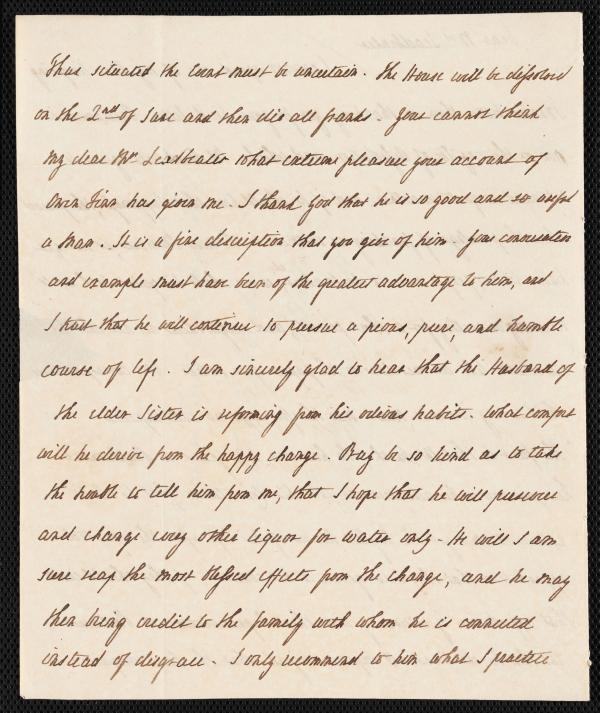 Thus situated the Event must be uncertain. The House will be dissolved
on the 2nd of June and then die all franks. You cannot think
my dear Mrs Leadbeater what extreme pleasure your account of
Owen Finn has given me. I thank God that he is so good and so useful
a Man. It is a fine description that you give of him. Your conversation
and example must have been of the greatest advantage to him, and
I trust that he will continue to pursue a pious, pure, and humble
course of life. I am sincerely glad to hear that the Husband of
the elder Sister is reforming from his odious habits. What comfort
will he derive from the happy change. Pray be so kind as to take
the trouble to tell him from me, that I hope that he will persevere
and change every other liquor for water only - He will I am
sure reap the most blessed effects from the change, and he may
then bring credit to the family with whom he is connected
instead of disgrace. I only recommend to him what I practice